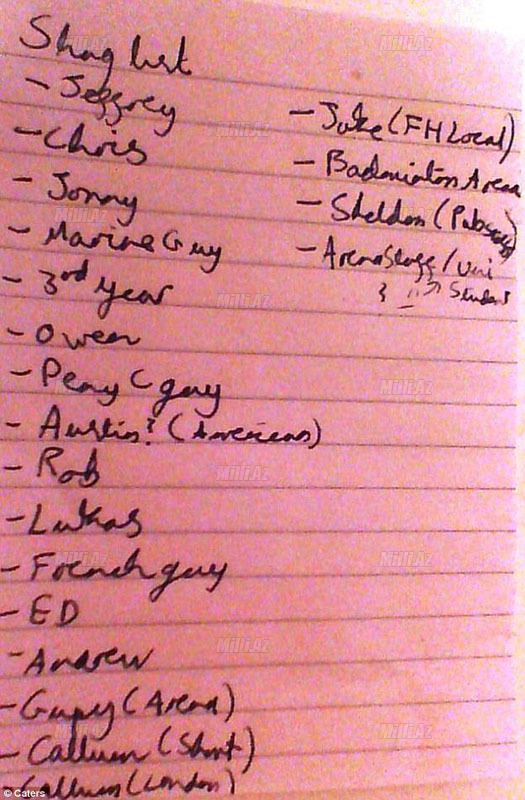 Shag list
- Jeffrey
- Chris
- Jonny
- Marine Guy
- 3rd year
- Owen
- Penny C guy
- Austin? (American)
- Rob
- Lukas
- French guy
- ED
- Andrew
- (Arena)
- Callum (Short)
- Callum (London)
- Jake (FH Local)
- Badminton Arena
- Sheldon
- Arena Stagg / Uni
Student
© Caters
Milli.Az